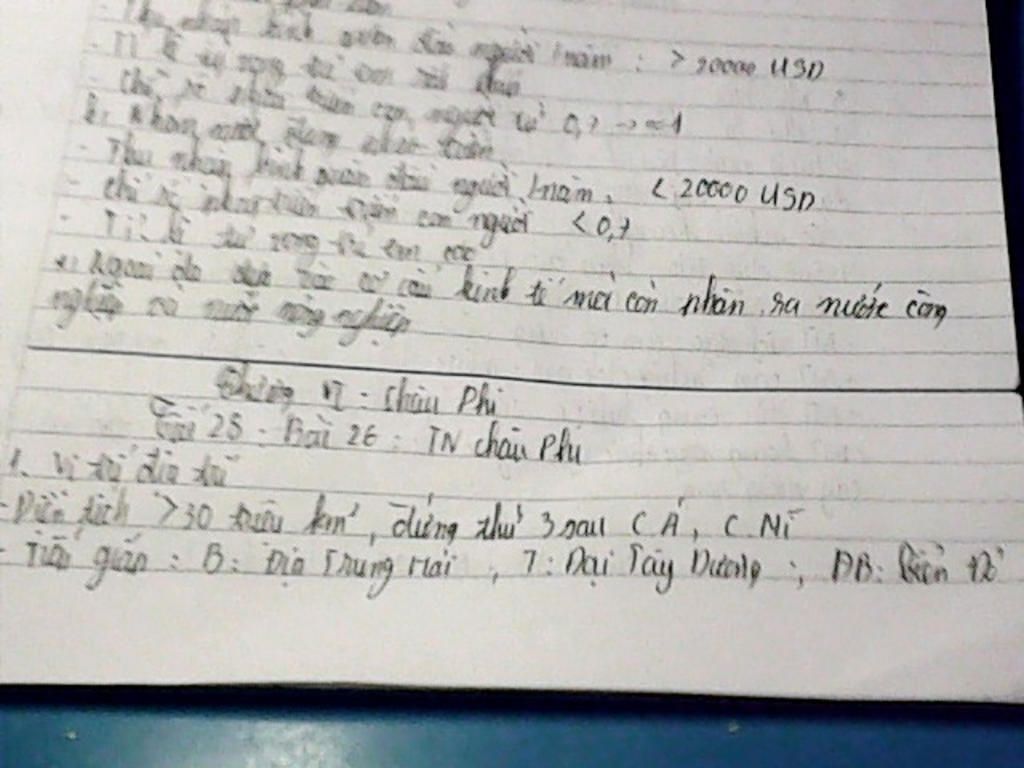 - Thu nhập bình quân đầu người /năm : > 20000 USD
- Tỉ lệ tử vong trẻ em rất thấp
- Chỉ số phát triển con người từ 0,7 → ≈ 1
- Thu nhập bình quân đầu người /năm, < 20000 USD
- chỉ số phát triển con người < 0,7
- Tỉ lệ tử vong trẻ em cao
Ngoài ra dựa vào cơ cấu kinh tế mới còn nhận ra nước công
nghiệp và nước nông nghiệp
Chương VI - Châu Phi
Tiết 28 - Bài 26 : TN châu Phi
1. Vị trí địa lí
- Diện tích > 30 triệu km², đứng thứ 3 sau C Á, C. Mĩ
- Tiếp giáp : B : Địa Trung Hải , T : Đại Tây Dương ; ĐB : Biển Đỏ